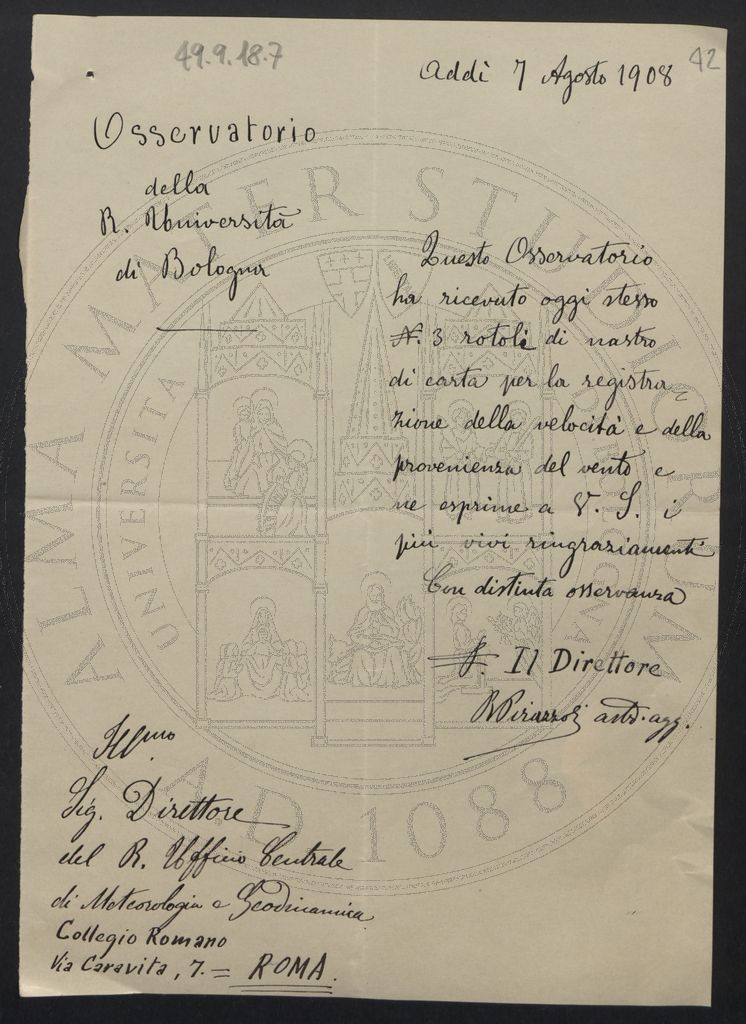 49.9.18.7
42
Addì 7 Agosto 1908
Osservatorio
della
R. Università
di Bologna
Questo Osservatorio
ha ricevuto oggi stesso
N. 3 rotoli di nastro
di carta per la registra-
zione della velocità e della
provenienza del vento e
ne esprime a V. S. i
più vivi ringraziamenti
Con distinta osservanza
p. Il Direttore
R Pirazzoli astr. agg.
Illmo
Sig. Direttore
del R. Ufficio Centrale
di Meteorologia e Geodinamica
Collegio Romano
Via Caravita, 7. = ROMA.
ALMA MATER STUDIORUM
UNIVERSITA
A.D. 1088